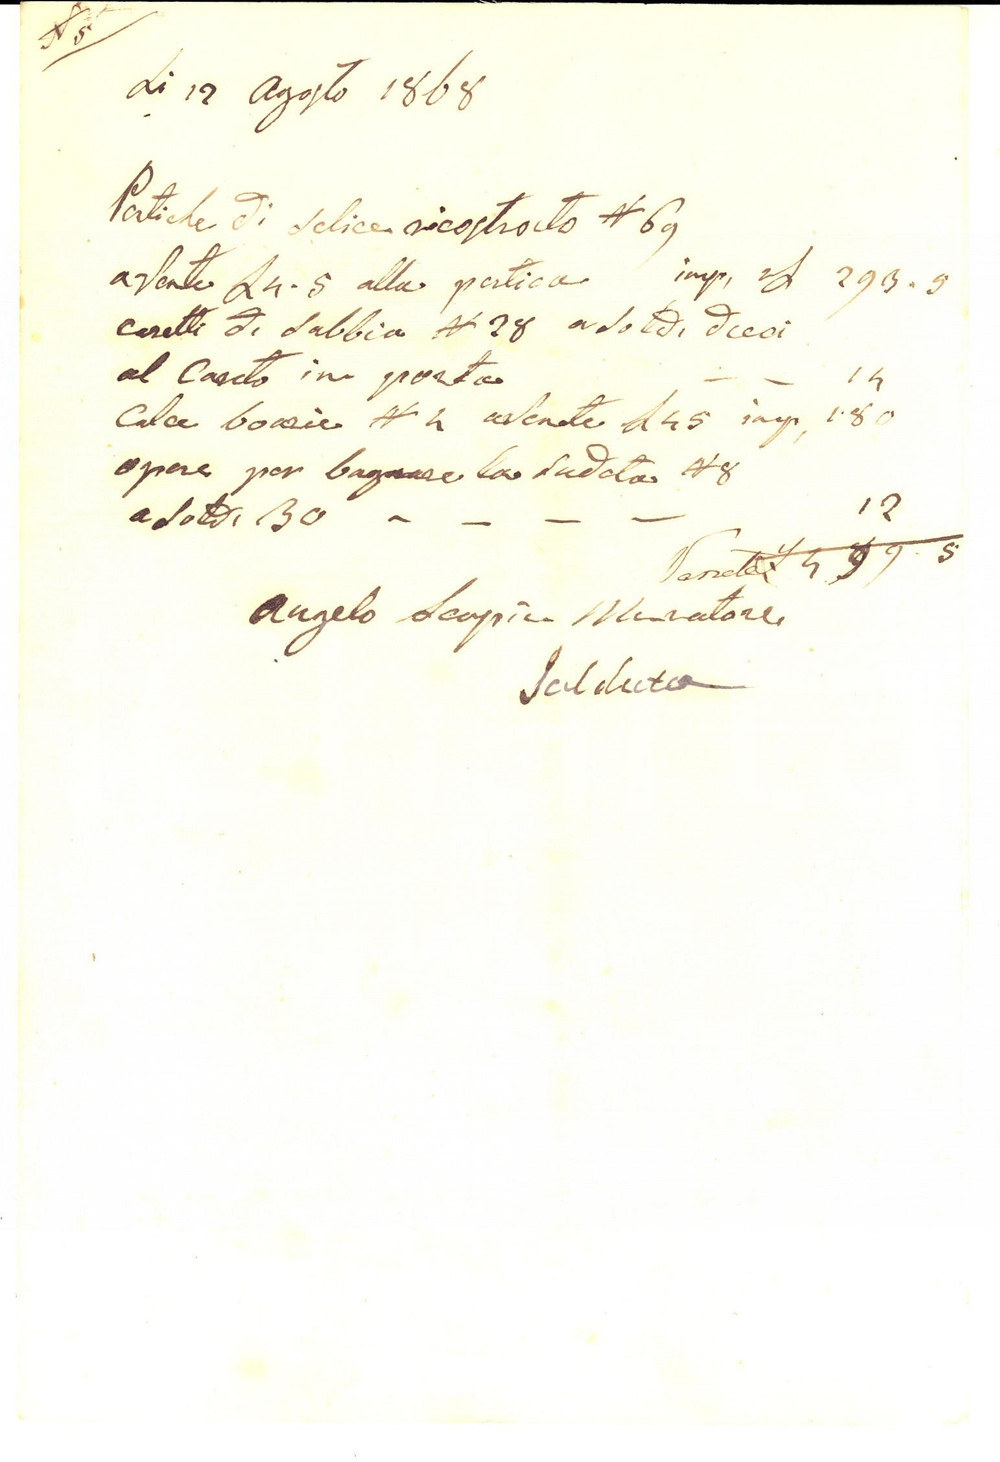 N 5
Li 12 Agosto 1868
Pertiche di selice ricostrato N 69
avente L 4.5 alla pertica imp. L 293.5
caretti di sabbia N 28 a soldi dieci
al Careto in posta - - 14
Calce N 4 avente L 45 imp, 180
opere per bagnare la sudeta N 8
a soldi 30 - - - - 12
Venete L 499.5
Angelo Scapin Muratore
Saldata